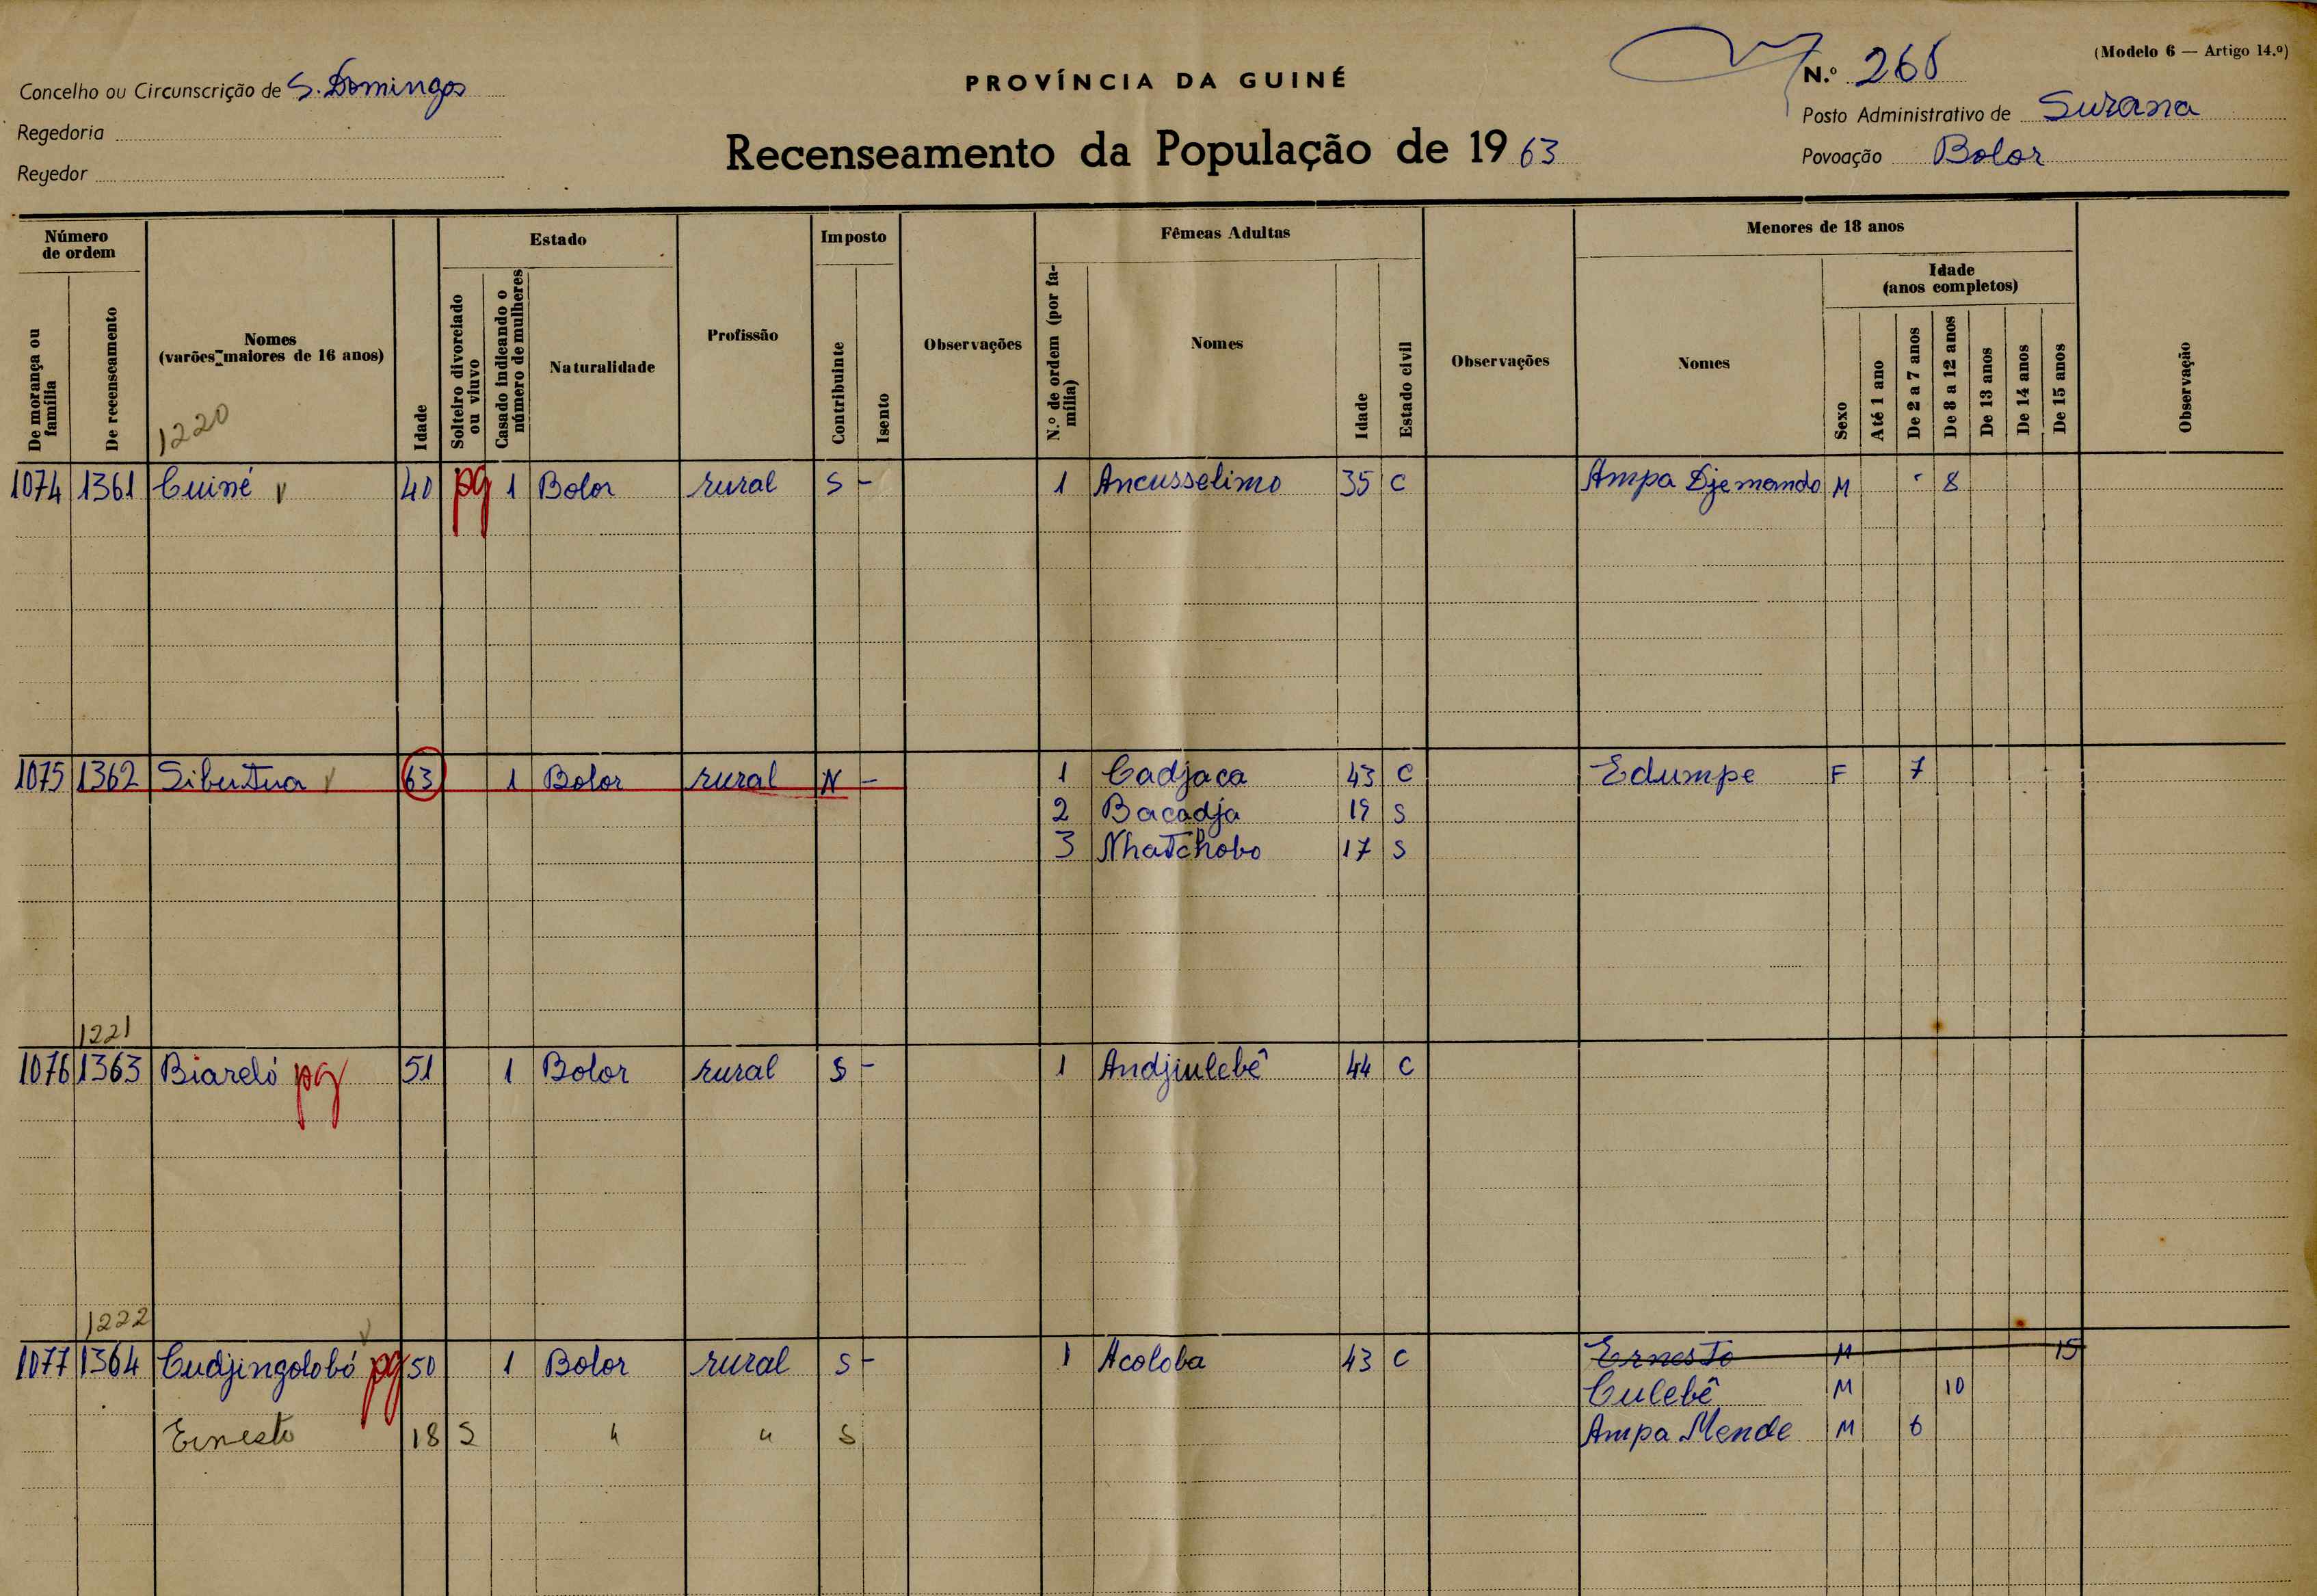 (Modelo 6 — Artigo 14.º)
Concelho ou Circunscrição de S. Domingos
Regedoria
Regedor
PROVÍNCIA DA GUINÉ
Recenseamento da População de 19 63
N.º 268
Posto Administrativo de Surana
Povoação Bolor
Número de ordem
De morança ou família
De recenseamento
Nomes
(varões maiores de 16 anos)
1220
Idade
Estado
Solteiro divorciado ou viuvo
Casado indicando o número de mulheres
Naturalidade
Profissão
Imposto
Contribuinte
Isento
Observações
Fêmeas Adultas
N.º de ordem (por família)
Nomes
Idade
Estado civil
Observações
Menores de 18 anos
Nomes
Sexo
Idade
(anos completos)
Até 1 ano
De 2 a 7 anos
De 8 a 12 anos
De 13 anos
De 14 anos
De 15 anos
Observação
1074 1361 Cuiné v 40 pg 1 Bolor rural S - 1 Ancusselimo 35 C Ampa Djemondo M - 8
1075 1362 Sibutua v 63 1 Bolor rural N - 1 Cadjaca 43 C Edumpe F 7
2 Bacadja 19 S
3 Nhatchobo 17 S
1221
1076 1363 Biareló pg 51 1 Bolor rural S - 1 Andjiulebê 44 C
1222
1077 1364 Cudjingolobó v pg 50 1 Bolor rural S - 1 Acoloba 43 C Ernesto M 15
Culebê M 10
Ernesto 18 S " " S Ampa Mende M 6